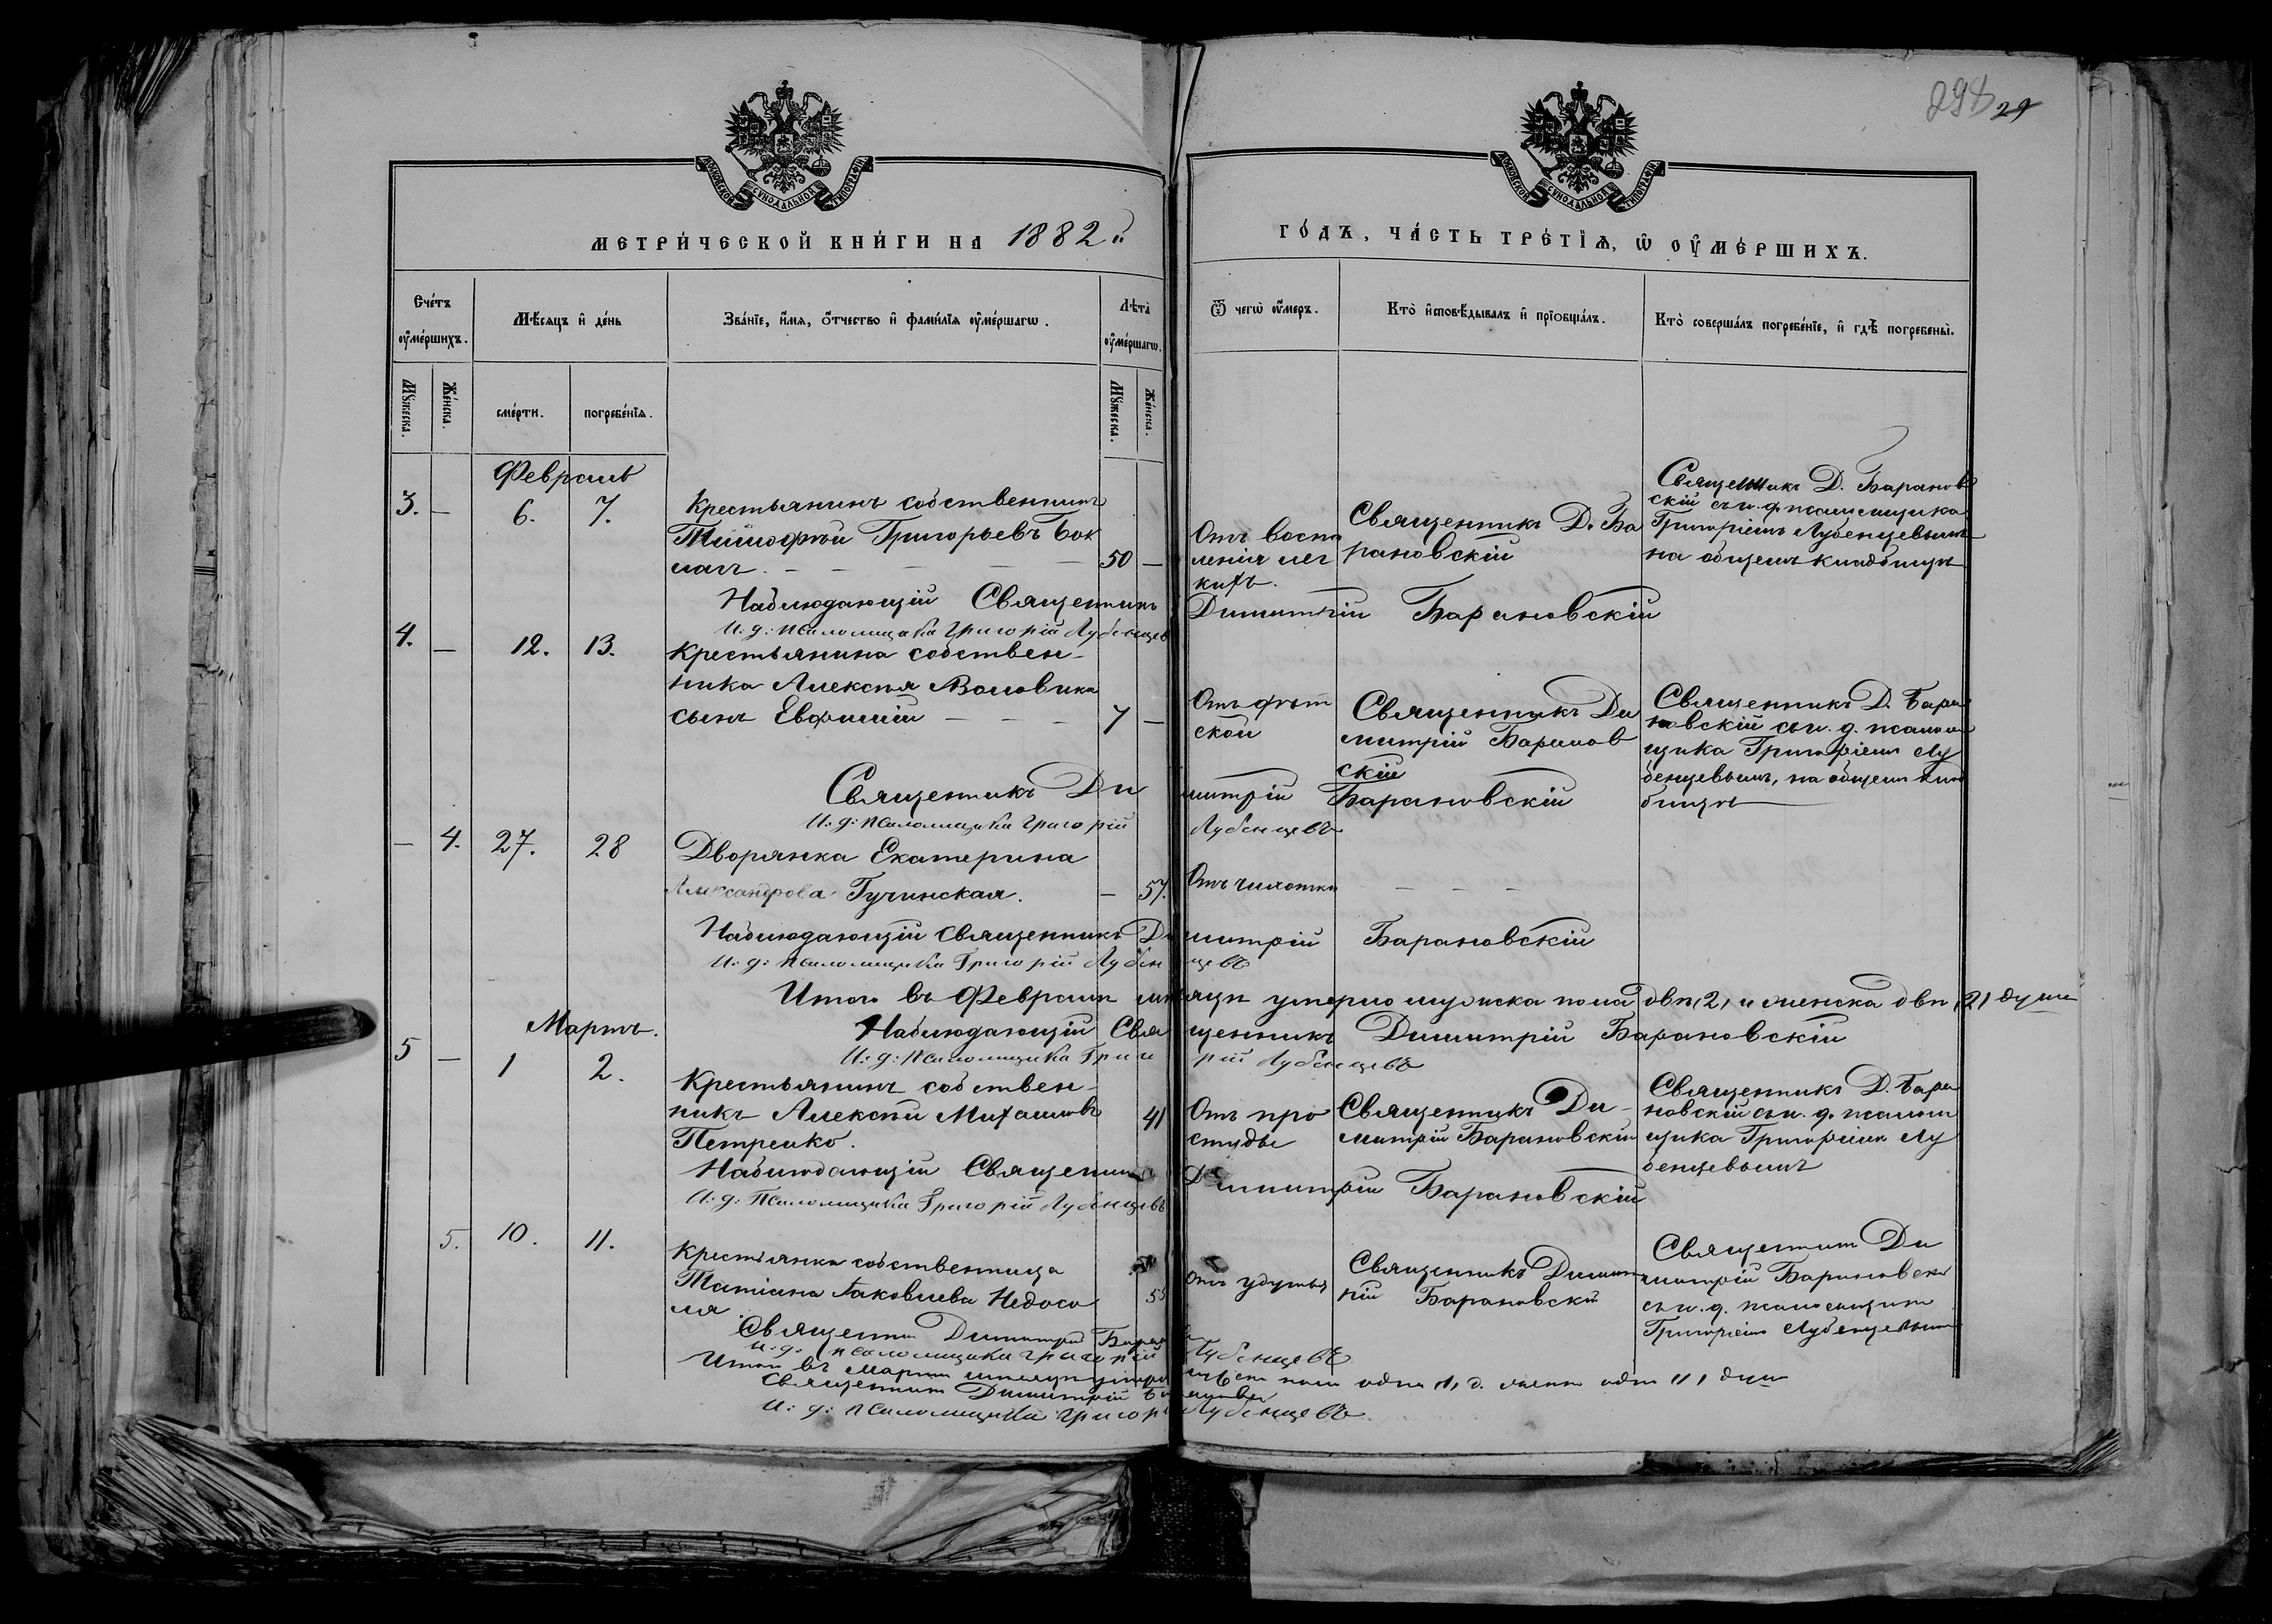 298 29
МОСКОВСКОЙ СѴНОДАЛЬНОЙ ТИПОГРАФІИ
МОСКОВСКОЙ СѴНОДАЛЬНОЙ ТИПОГРАФІИ
МЕТРИ́ЧЕСКОЙ КНИ́ГИ НА 1882й
ГО́ДЪ, ЧА́СТЬ ТРЕ́ТІѦ, Ѡ ОУ҆МЕ́РШИХЪ.
Сче́тъ оу҆ме́ршихъ.
Мѣ́сяцъ и҆ де́нь
Зва́нїе, и҆́мя, ѻ҆́тчество и҆ фами́лїя оу҆ме́ршагѡ.
Лѣта̀ оу҆ме́ршагѡ.
Ѿ чегѡ̀ оу҆́меръ.
Кто̀ и҆сповѣ́дывалъ и҆ прїѡбща́лъ.
Кто̀ соверша́лъ погребе́нїе, и҆ гдѣ̀ погребены̀.
Мꙋ́жеска.
Же́нска.
сме́рти.
погребе́нїя.
Мꙋ́жеска.
Же́нска.
Февраль
3. — 6. 7.
Крестьянинъ собственникъ
Тимофѣй Григорьевъ Бок
50 —
Отъ воспа
ленія лег
кихъ.
Священникъ Д. Ба
рановскій
Священникъ Д. Баранов
скій съ и. д. псаломщика
Григоріемъ Лубенцевымъ
на общемъ кладбищѣ
Наблюдающій Священникъ Димитрій Барановскій
И: д: псаломщика Григорій Лубенцев
4. — 12. 13.
Крестьянина собствен-
ника Алексѣя Воловика
сынъ Евфимій — — — 7 —
ской
Священникъ Ди
митрій Баранов
скій
Священникъ Д. Бара
новскій съ и. д. псалом
щика Григоріемъ Лу
бенцевымъ, на общемъ клад
бищѣ
Священникъ Димитрій Барановскій
И: д: псаломщика Григорій Лубенцевъ
— 4. 27. 28
Дворянка Екатерина
Александрова Гучинская. — 57.
Отъ чахотки — — —
Наблюдающій Священникъ Димитрій Барановскій
И: д: псаломщика Григорій Лубенцевъ
Итого въ Февралѣ мѣсяцѣ умерло мужска пола двѣ (2) и женска двѣ (2) души
Мартъ.
Наблюдающій Священникъ Димитрій Барановскій
И: д: псаломщика Григорій Лубенцевъ
5 — 1 2.
Крестьянинъ собствен-
никъ Алексѣй Михаиловъ
Петренко. 41
Отъ про
студы
Священникъ Ди-
митрій Барановскій
Священникъ Д. Бара
новскій съ и. д. псалом
щика Григоріемъ Лу
бенцевымъ
Наблюдающій Священникъ Димитрій Барановскій
И: д: Псаломщика Григорій Лубенцевъ
5. 10. 11.
Крестьянка собственница
Татіана Яковлева Недосо
ля
Отъ удушья
Священникъ Димит
рій Барановскій
Священникъ Ди
митрій Барановскій
съ и. д. псаломщика
Григоріемъ Лубенцевымъ
Священникъ Димитрій
И: д: псаломщика Григорій Лубенцевъ
Итого въ Мартѣ мѣсяцѣ
Священникъ Димитрій
И: д: псаломщика Григорій Лубенцевъ